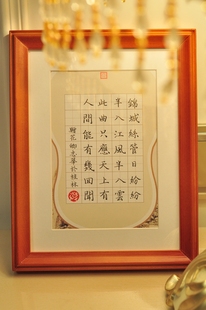 錦城絲管日紛紛
半入江風半入雲
此曲只應天上有
人間能有幾回聞
贈花卿之華於桂林